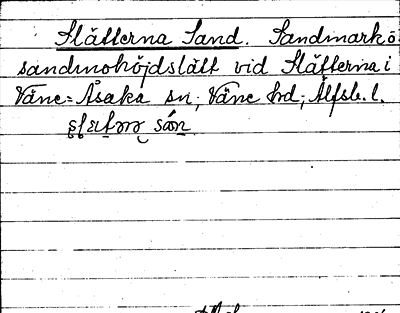 Slätterna Sand. Sandmark ö.
sandmohöjdslätt vid Slätterna i
Väne-Åsaka sn; Väne hd; Älfsb. l.